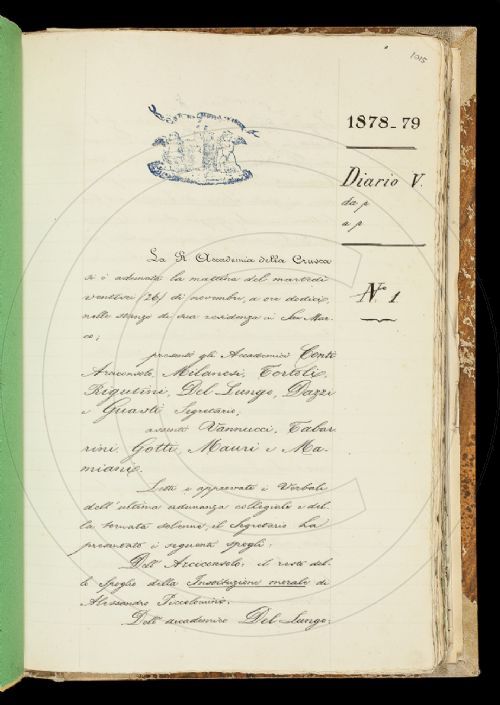 1015
1878-79
Diario V.
da p
a p
N.º 1
La R. Accademia della Crusca
si è adunata la mattina del martedì
ventisei (26) di novembre, a ore dodici,
nelle stanze di sua residenza in San Mar-
co;
presenti gli Accademici Conti
Arciconsolo, Milanesi, Tortoli,
Rigutini, Del Lungo, Dazzi
e Guasti Segretario;
assenti Vannucci, Tabar-
rini, Gotti, Mauri e Ma-
miani.
Letti e approvati i Verbali
dell'ultima adunanza collegiale e del-
la tornata solenne, il Segretario ha
presentato i seguenti spogli:
Dell'Arciconsolo: il resto del-
lo Spoglio della Instituzione morale di
Alessandro Piccolomini.
Dell'accademico Del Lungo: